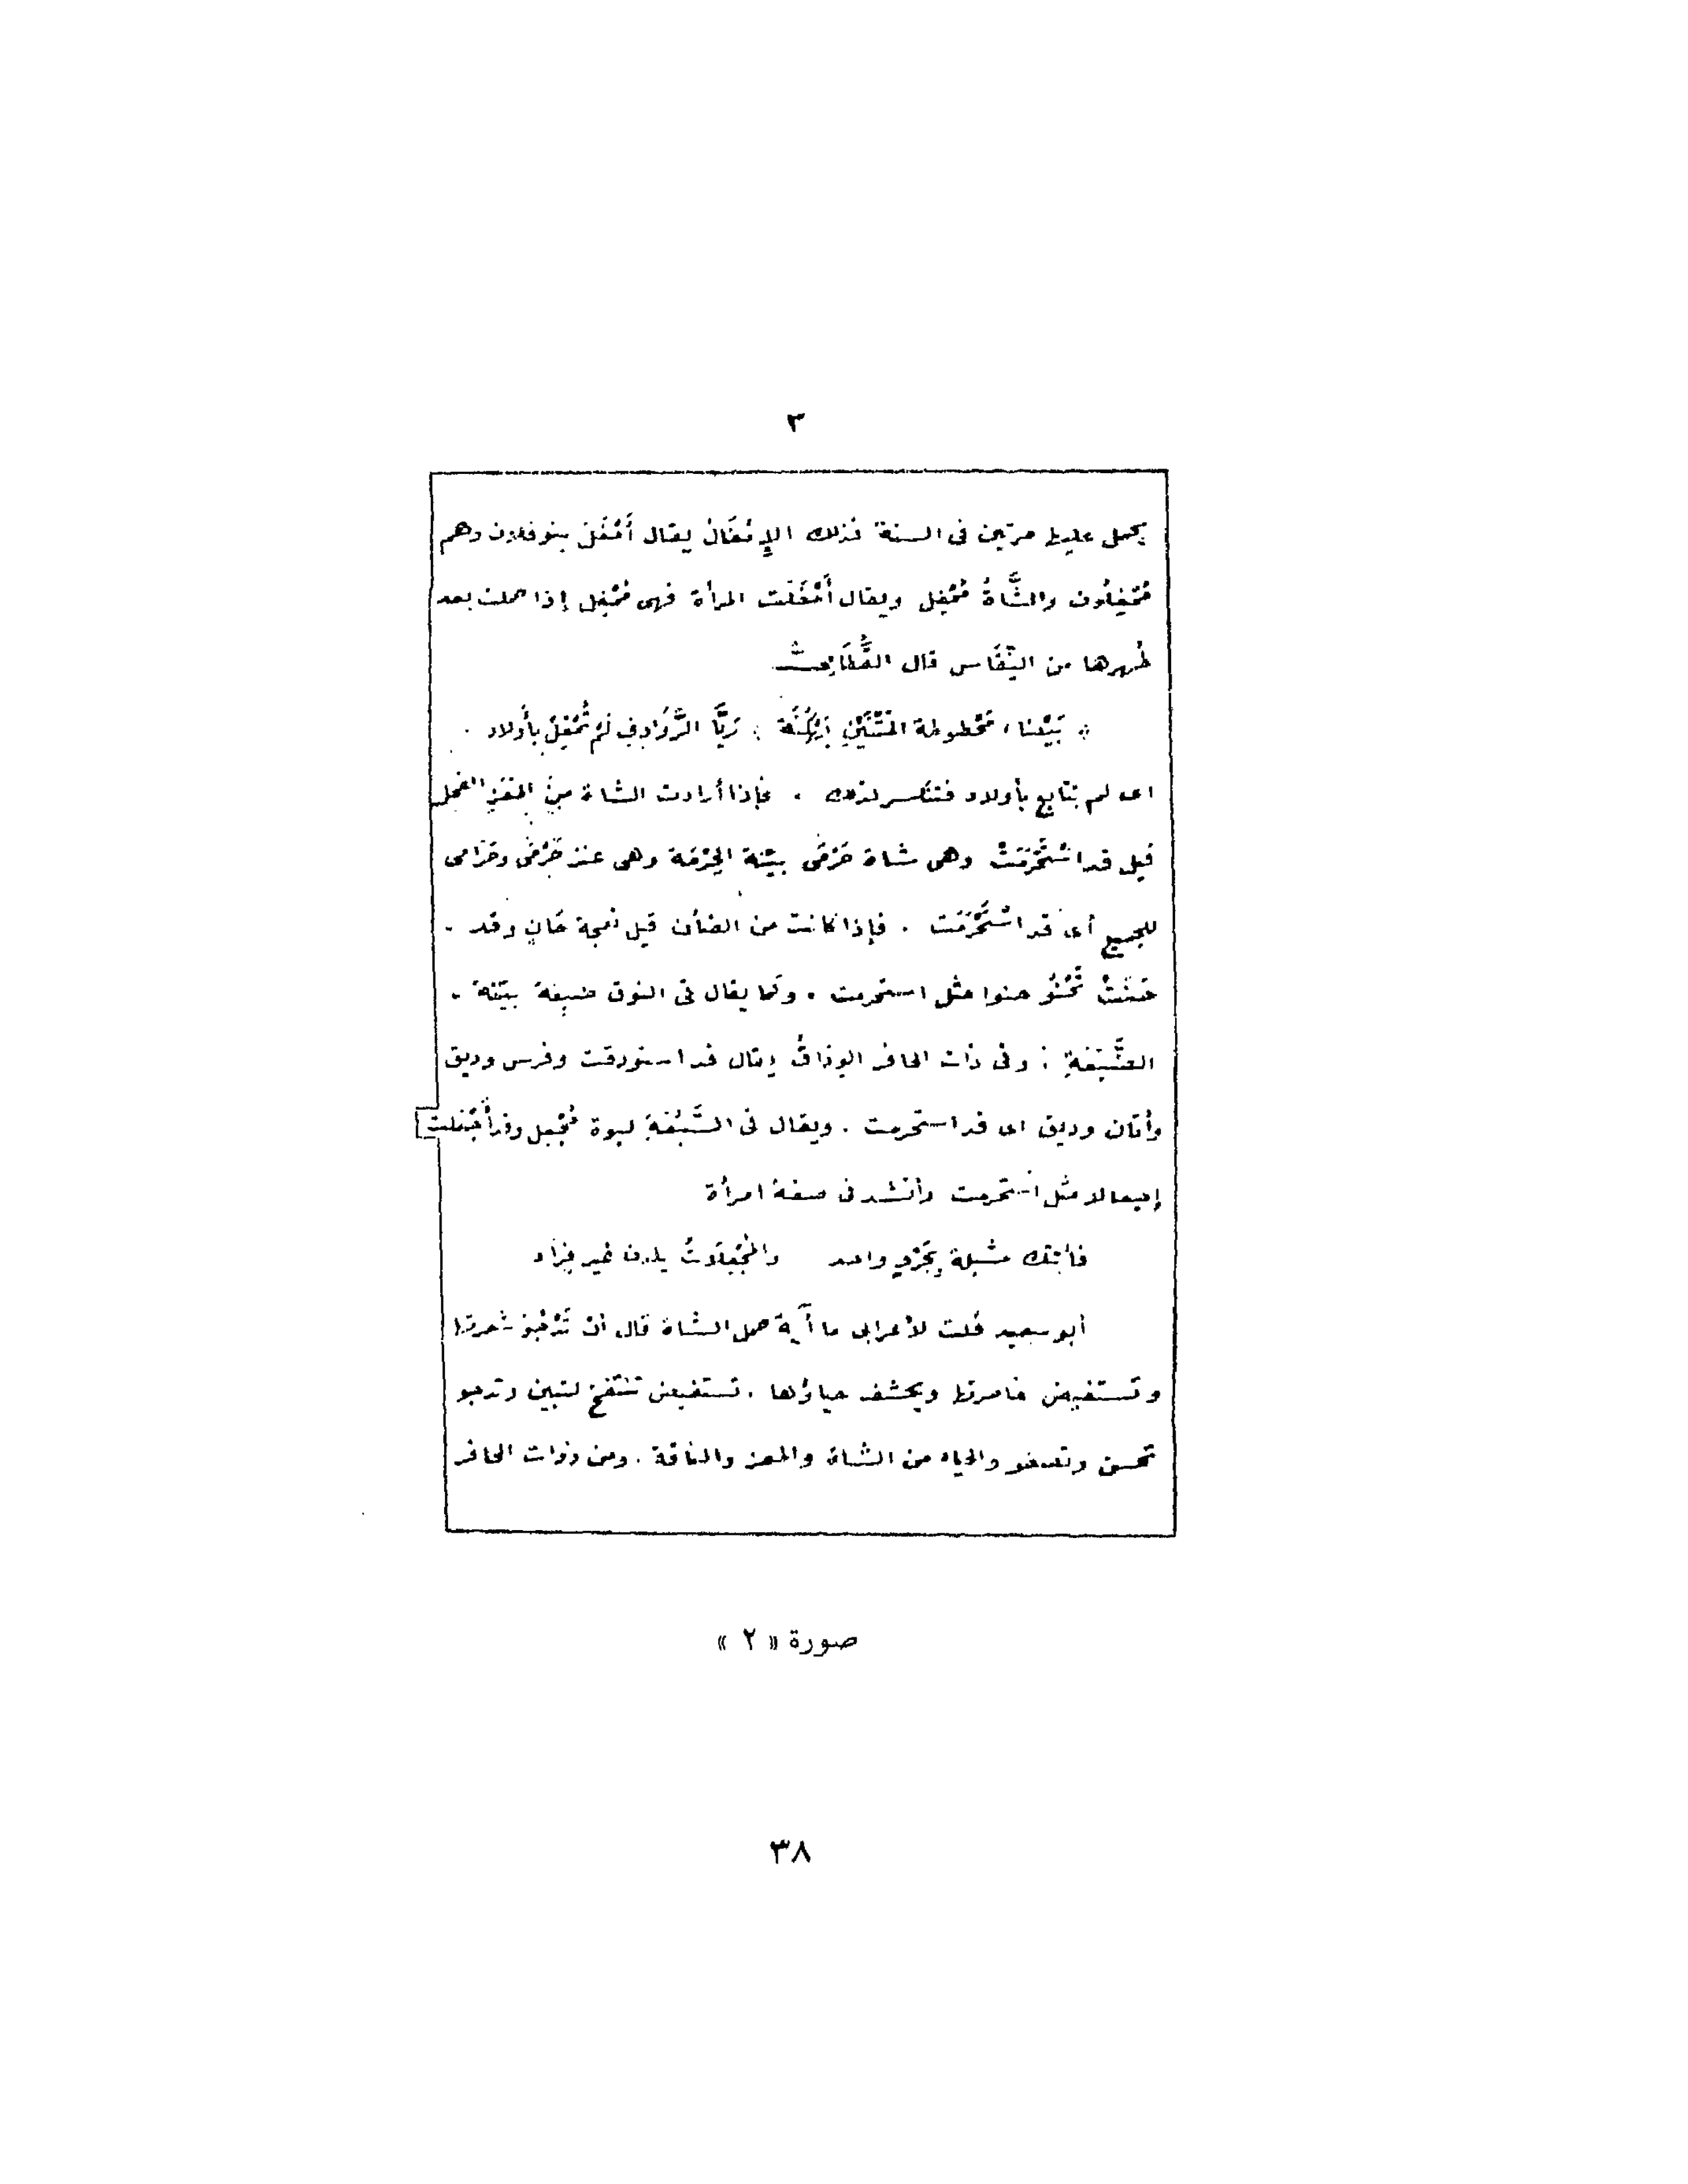 ٣
يحمل عليها مرتين فى السنة فذلك الإمْغَالُ يقال أَمْغَلَ بنو فلان وهم
مُمْغِلُون والشَّاةُ مُمْغِل ويقال أَمْغَلَت المرأة فهى مُمْغِل إذا حملت بعد
طُهرها من النِّفَاس قال القُطَامِى
بَيْضاء مَحْطوطة المَتْنَيْنِ بَهْكَنَة : رَيَّا الرَّوَادِفِ لَمْ تُمْغِلْ بأَولاد .
اى لم تتابع بأولاد فتنكسر لذلك . فإذا أرادت الشاة مِنَ المَعَزِ الفحل
قيل قد اسْتَحْرَمَتْ وهى شاة حَرْمَى بيّنة الحِرْمَة وهى عنز حَرْمَى وحَرَامى
للجميع أى قد اسْتَحْرَمَت . فإذا كانت من الضأن قيل نعجة حَانٍ وقد .
حَنَتْ تَحْنُو حنوا مثل استحرمت . وكما يقال فى النوق ضَبِعَة بيّنة .
الضَّبَعَةِ : وفى ذات الحافر الوِدَاقُ يقال قد استودقت وفرس وديق
وأتان وديق اى قد استحرمت . ويقال فى السَّبُعَةِ لبوة مُجْعِل وقد أَجْعَلت
إجعالا مثل استحرمت وأنشد فى صفة امرأة
فأتتك مشبلة بِجَرْوٍ واحد والمُجْعِلَاتُ يلدن غير فِرَاد
أبو سعيد قلت لأعرابى ما آيَة حمل الشاة قال أن تَدْجُوَ شعرتها
وتستفيض خاصرتها ويحشف حياؤها . تستفيض تنتفخ لتبين وتدجو
تحسن وتصفو والحياء من الشاة والمعز والناقة . ومن ذوات الحافر
صورة « ٢ »
٣٨